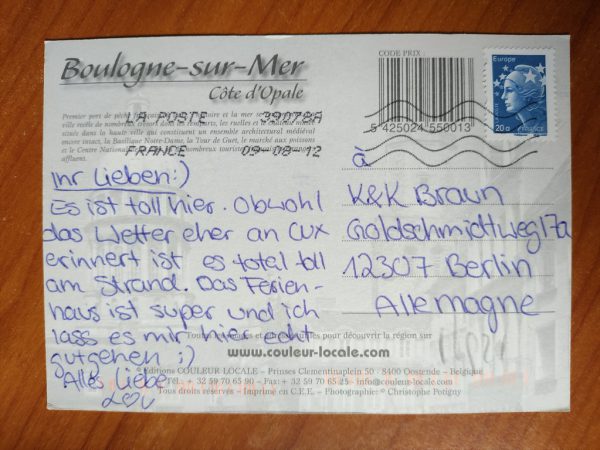 Boulogne-sur-Mer
Côte d'Opale
CODE PRIX :
5 425024 550013
Europe
20g FRANCE
Premier port de pêche
située dans la haute ville qui constituent un ensemble architectural médiéval
encore intact, la Basilique Notre-Dame, la Tour de Guet, le marché aux poissons
et le Centre National
affluent.
LA POSTE 39078A
FRANCE 09-08-12
Ihr Lieben:)
Es ist toll hier. Obwohl
das Wetter eher an CUX
erinnert ist es total toll
am Strand. Das Ferien-
haus ist super und ich
lass es mir hier echt
gutgehen ;)
Alles Liebe
à
K&K Braun
Goldschmidtweg 17a
12307 Berlin
Allemagne
pour découvrir la région sur
www.couleur-locale.com
© Editions COULEUR LOCALE - Prinses Clementinaplein 50 - 8400 Oostende - Belgique
Tél.: + 32 59 70 65 90 - Fax: + 32 59 70 65 25 - info@couleur-locale.com
Tous droits réservés - Imprimé en C.E.E. - Photographie: © Christophe Potigny